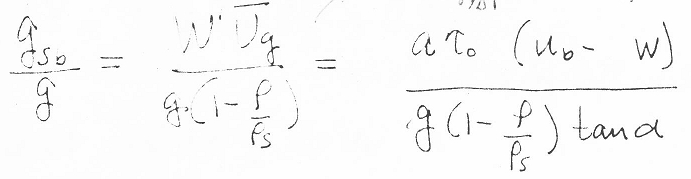 g_{sb} / g = W' \overline{U}_g / g·(1 - ρ/ρ_s) = a τ_o (u_b - w) / g (1 - ρ/ρ_s) tan α